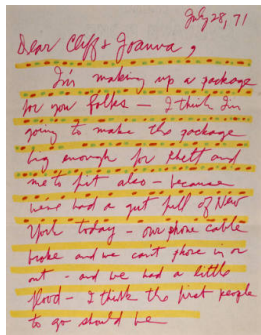 July 28, 71
Dear Cliff & Joanna,
I'm making up a package
for you folks — I think I'm
going to make the package
big enough for Rhett and
me to fit also — because
weve had a gut full of New
York today — our phone cable
broke and we can't phone in or
out - and we had a little
flood — I think the first people
to go should be